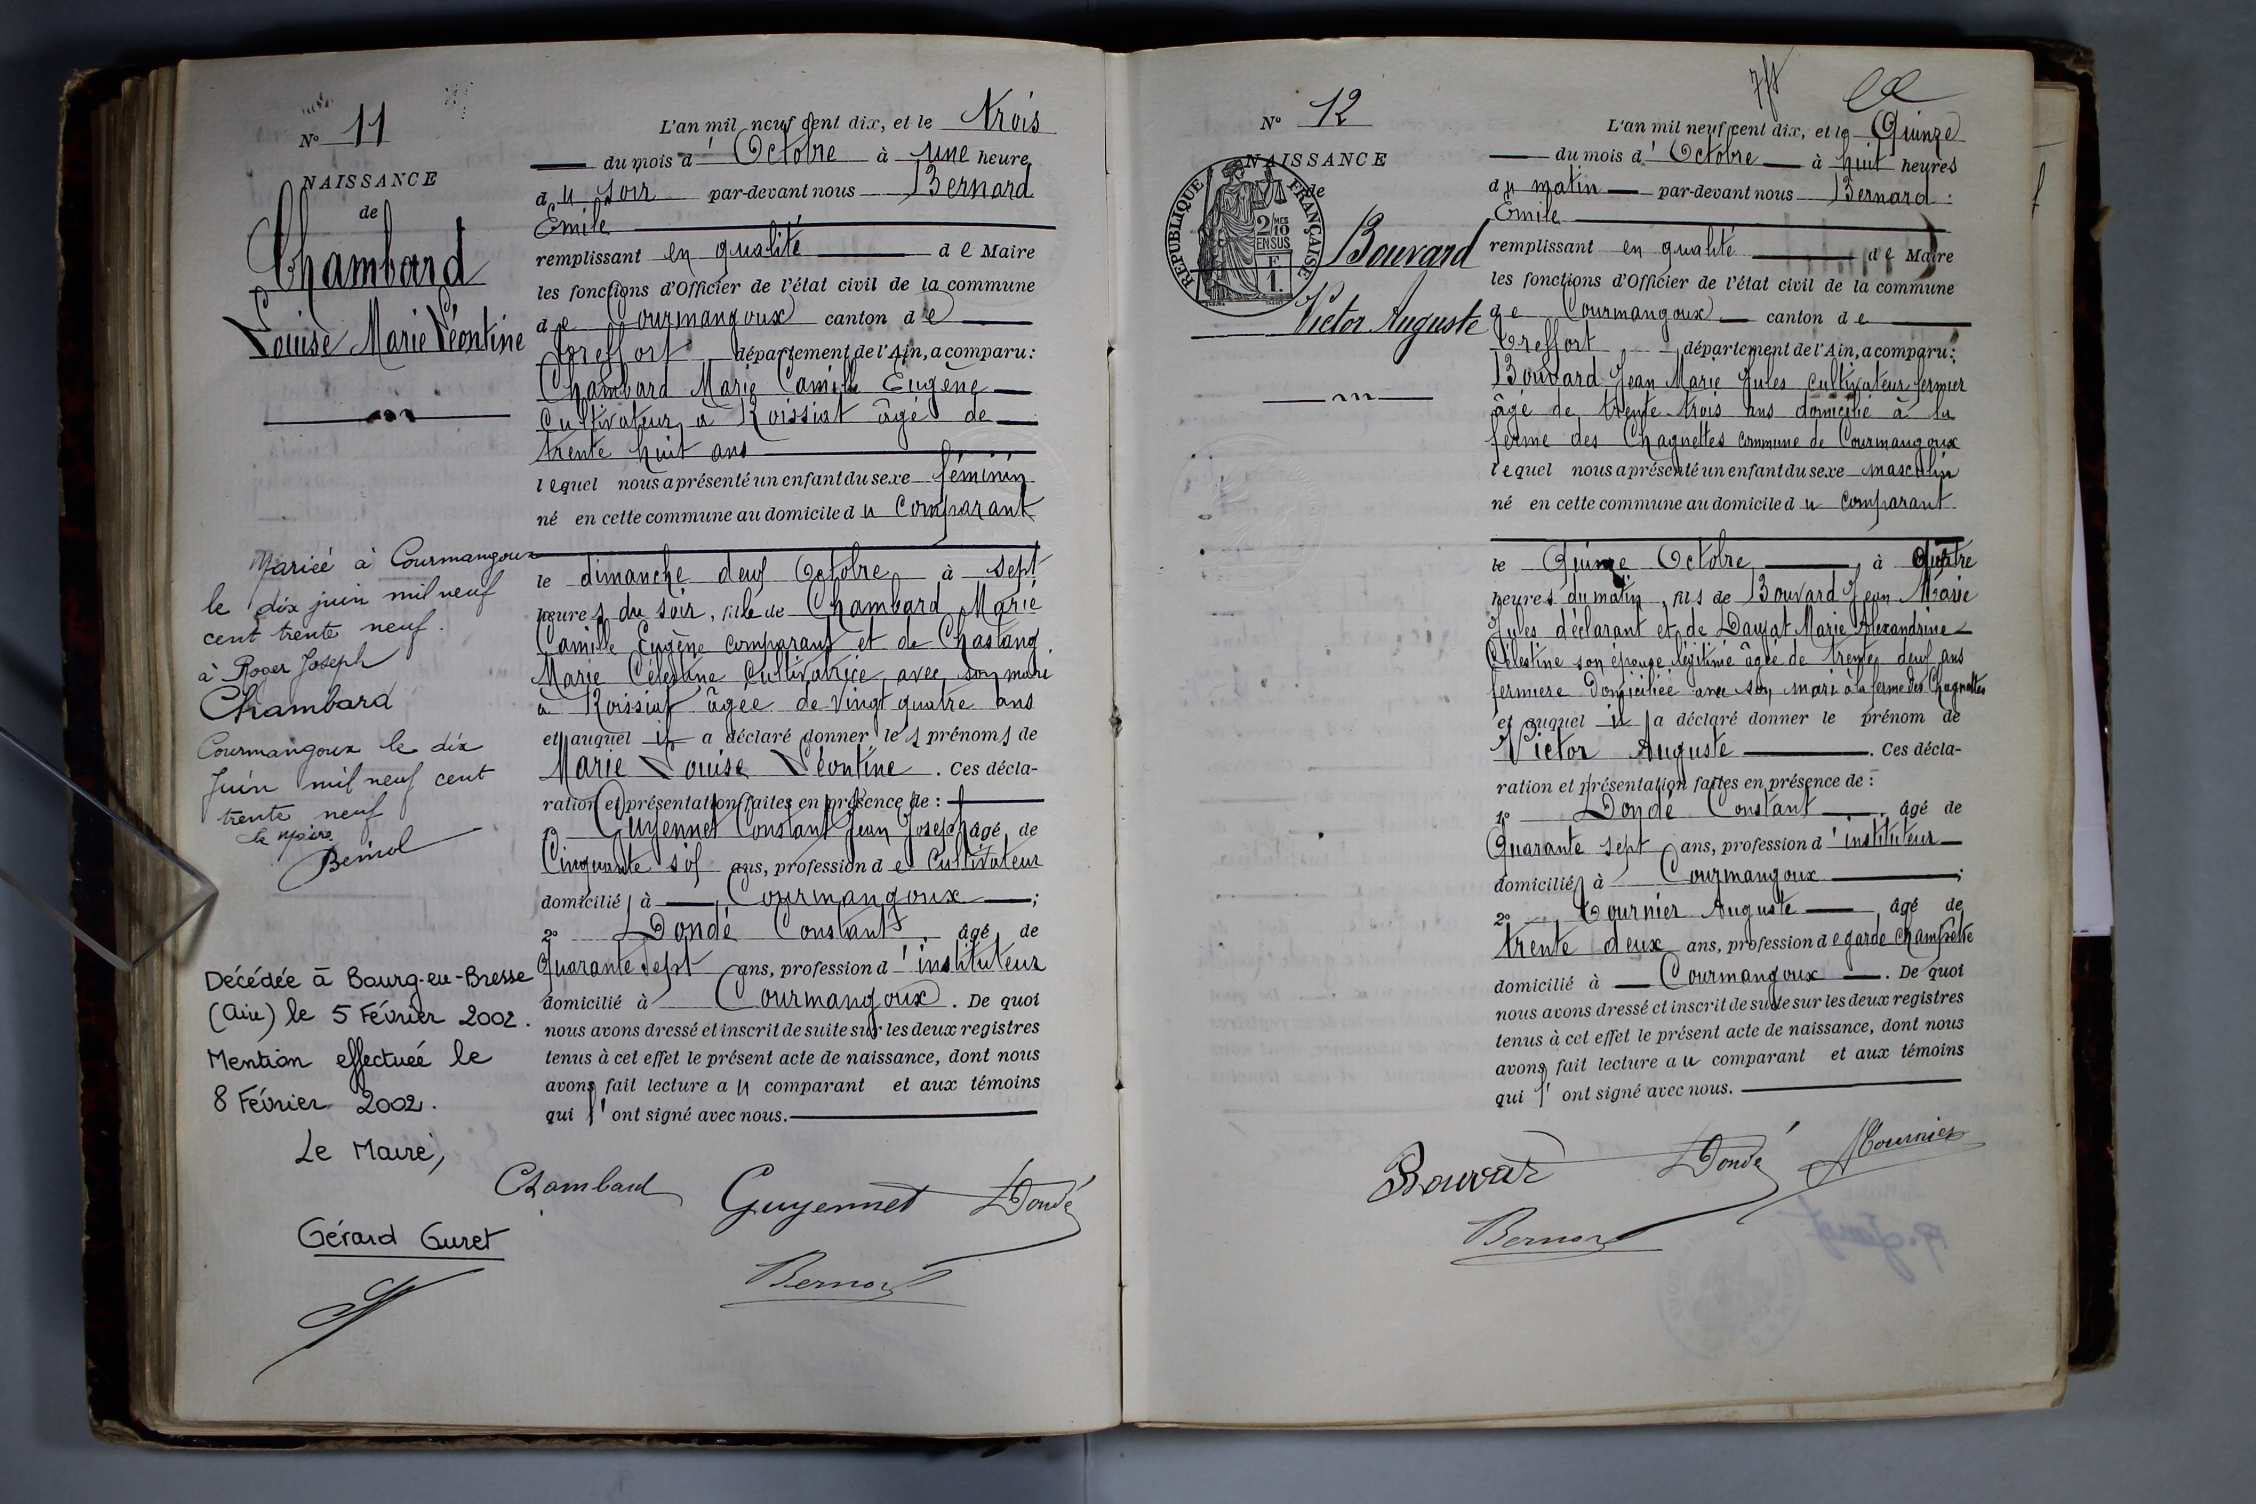 Nº 11
NAISSANCE
de
Chambard
Louise Marie Léontine
Mariée à Courmangoux
le dix juin mil neuf
cent trente neuf.
à Roger Joseph
Chambard
Courmangoux le dix
Juin mil neuf cent
trente neuf
Le Maire
Décédée à Bourg-en-Bresse
(Ain) le 5 Février 2002.
Mention effectuée le
8 Février 2002.
Le Maire,
Gérard Guret
L'an mil neuf cent dix, et le Trois
du mois d' Octobre à une heure
du soir par-devant nous Bernard
Emile
remplissant en qualité de Maire
les fonctions d'Officier de l'état civil de la commune
de Courmangoux canton de
Treffort département de l'Ain, a comparu:
Chambard Marie Camille Eugène
Cultivateur à Roissiat âgé de
trente huit ans
lequel nous a présenté un enfant du sexe féminin
né en cette commune au domicile du Comparant
le dimanche deux Octobre à sept
heures du soir, fille de Chambard Marie
Camille Eugène comparant et de Chastang
Marie Célestine Cultivatrice avec son mari
à Roissiat âgée de vingt quatre ans
et auquel il a déclaré donner les prénoms de
Marie Louise Léontine. Ces décla-
ration et présentation faites en présence de :
1º Guyennet Constant Jean Joseph âgé de
Cinquante six ans, profession de Cultivateur
domicilié à Courmangoux ;
2º Dondé Constant, âgé de
Quarante sept ans, profession d'instituteur
domicilié à Courmangoux. De quoi
nous avons dressé et inscrit de suite sur les deux registres
tenus à cet effet le présent acte de naissance, dont nous
avons fait lecture au comparant et aux témoins
qui l'ont signé avec nous.
Chambard Guyennet Dondé
Bernard
Nº 12
NAISSANCE
de
RÉPUBLIQUE FRANÇAISE
2/10
EN SUS
F
1.
Bouvard
Victor Auguste
L'an mil neuf cent dix, et le Quinze
du mois d' Octobre à huit heures
du matin par-devant nous Bernard
Emile
remplissant en qualité de Maire
les fonctions d'Officier de l'état civil de la commune
de Courmangoux canton de
Treffort département de l'Ain, a comparu:
Bouvard Jean Marie Jules cultivateur fermier
âgé de trente trois ans domicilié à la
ferme des Chagnettes commune de Courmangoux
lequel nous a présenté un enfant du sexe masculin
né en cette commune au domicile du comparant
le Quinze Octobre à Quatre
heures du matin, fils de Bouvard Jean Marie
Jules déclarant et de Marie Alexandrine
Célestine son épouse légitime âgée de trente deux ans
fermière domiciliée avec son mari à la ferme des Chagnettes
et auquel il a déclaré donner le prénom de
Victor Auguste. Ces décla-
ration et présentation faites en présence de :
1º Dondé Constant, âgé de
Quarante sept ans, profession d'instituteur
domicilié à Courmangoux ;
2º Tournier Auguste, âgé de
trente deux ans, profession de garde champêtre
domicilié à Courmangoux. De quoi
nous avons dressé et inscrit de suite sur les deux registres
tenus à cet effet le présent acte de naissance, dont nous
avons fait lecture au comparant et aux témoins
qui l'ont signé avec nous.
Bouvard Dondé Tournier
Bernard